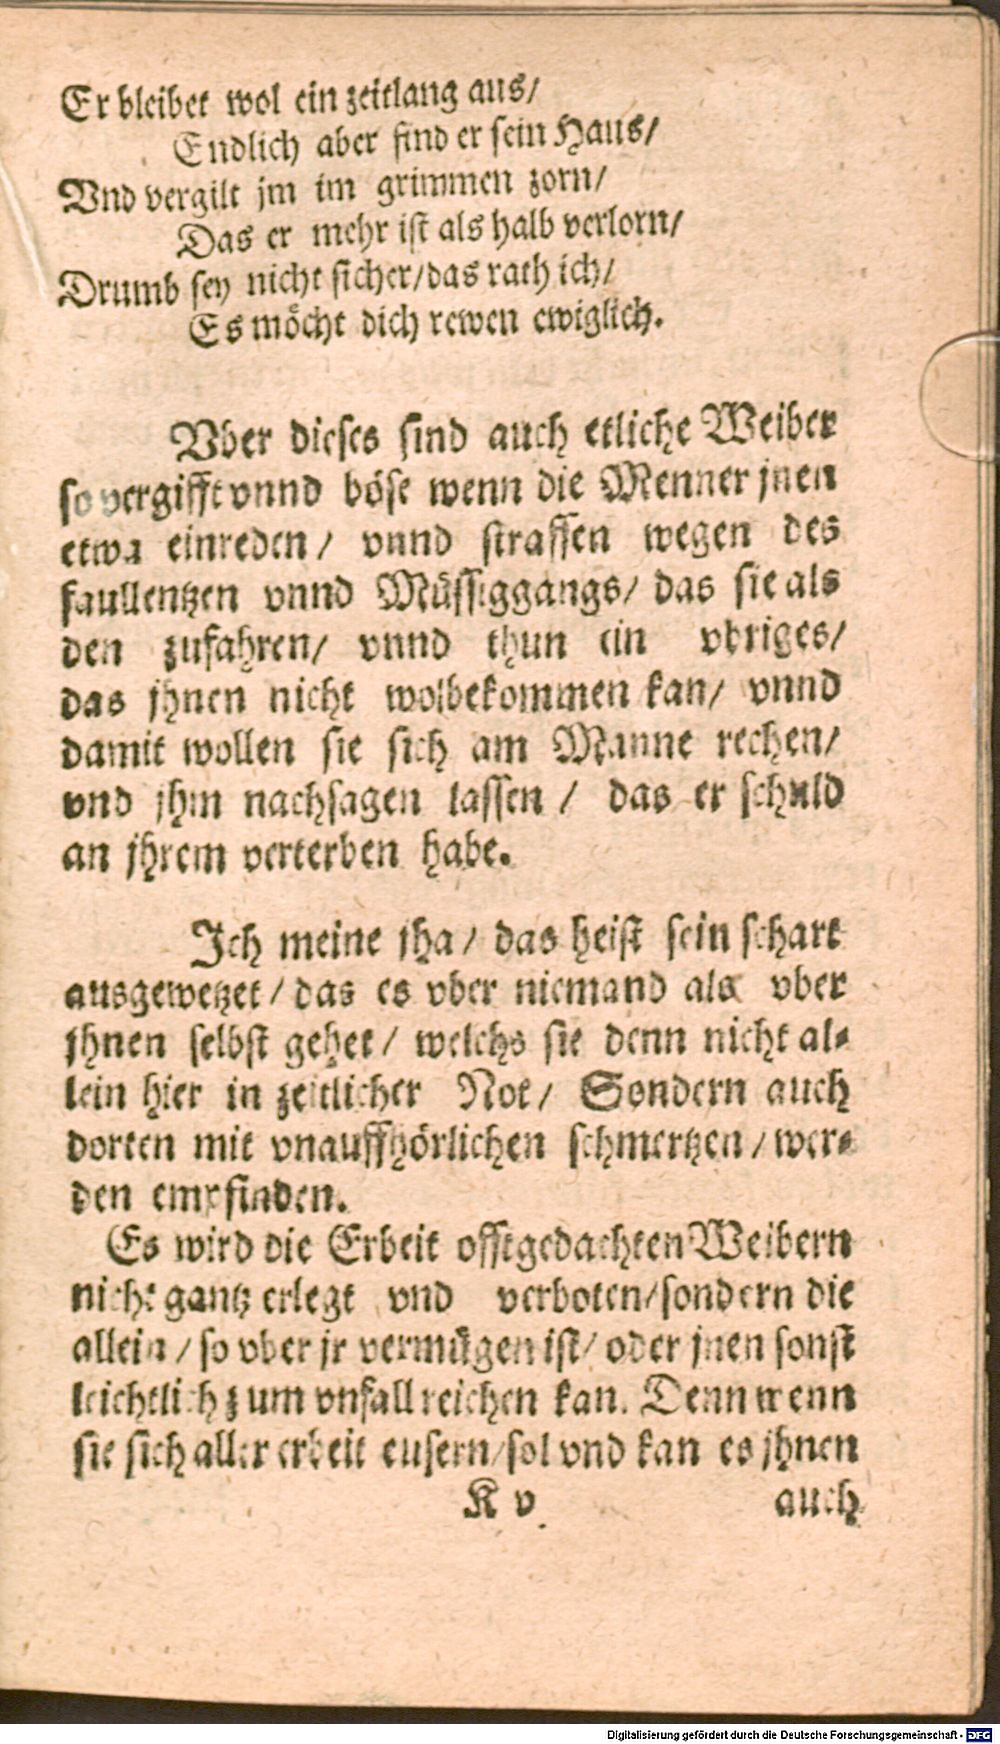 Er bleibet wol ein zeitlang aus/
Endlich aber find er sein Haus/
Vnd vergilt jm im grimmen zorn/
Das er mehr ist als halb verlorn/
Drumb sey nicht sicher/das rath ich/
Es möcht dich rewen ewiglich.
Vber dieses sind auch etliche Weiber
so vergifft vnnd böse wenn die Menner jnen
etwa einreden/ vnnd straffen wegen des
faullentzen vnnd Müssiggangs/ das sie als
den zufahren/ vnnd thun ein vbriges/
das jhnen nicht wolbekommen kan/ vnnd
damit wollen sie sich am Manne rechen/
vnd jhm nachsagen lassen / das er schuld
an jhrem verterben habe.
Ich meine jha/ das heist sein schart
ausgewetzet/ das es vber niemand als vber
jhnen selbst gehet/ welchs sie denn nicht al⸗
lein hier in zeitlicher Not/ Sondern auch
dorten mit vnauffhörlichen schmertzen/ wer⸗
den empfinden.
Es wird die Erbeit offtgedachten Weibern
nicht gantz erlegt vnd verboten/sondern die
allein / so vber jr vermügen ist/ oder jnen sonst
leichtlich zum vnfall reichen kan. Denn wenn
sie sich aller erbeit eusern/sol vnd kan es jhnen
K v
auch
Digitalisierung gefördert durch die Deutsche Forschungsgemeinschaft - DFG